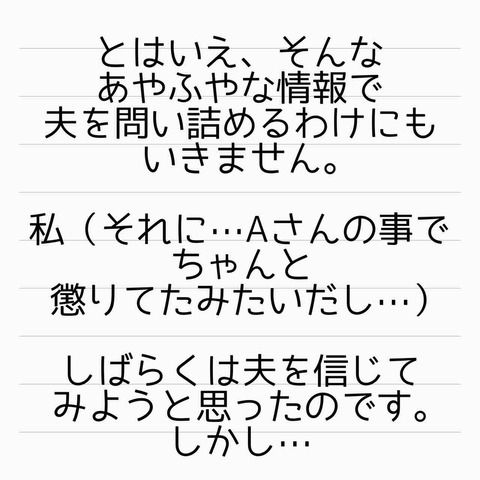 とはいえ、そんな
あやふやな情報で
夫を問い詰めるわけにも
いきません。
私（それに…Aさんの事で
ちゃんと
懲りてたみたいだし…）
しばらくは夫を信じて
みようと思ったのです。
しかし…